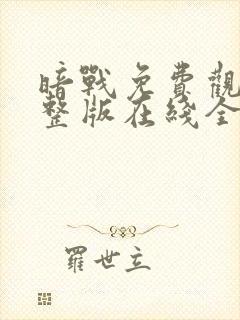 暗戰免費觀
整版在綫全
羅世立